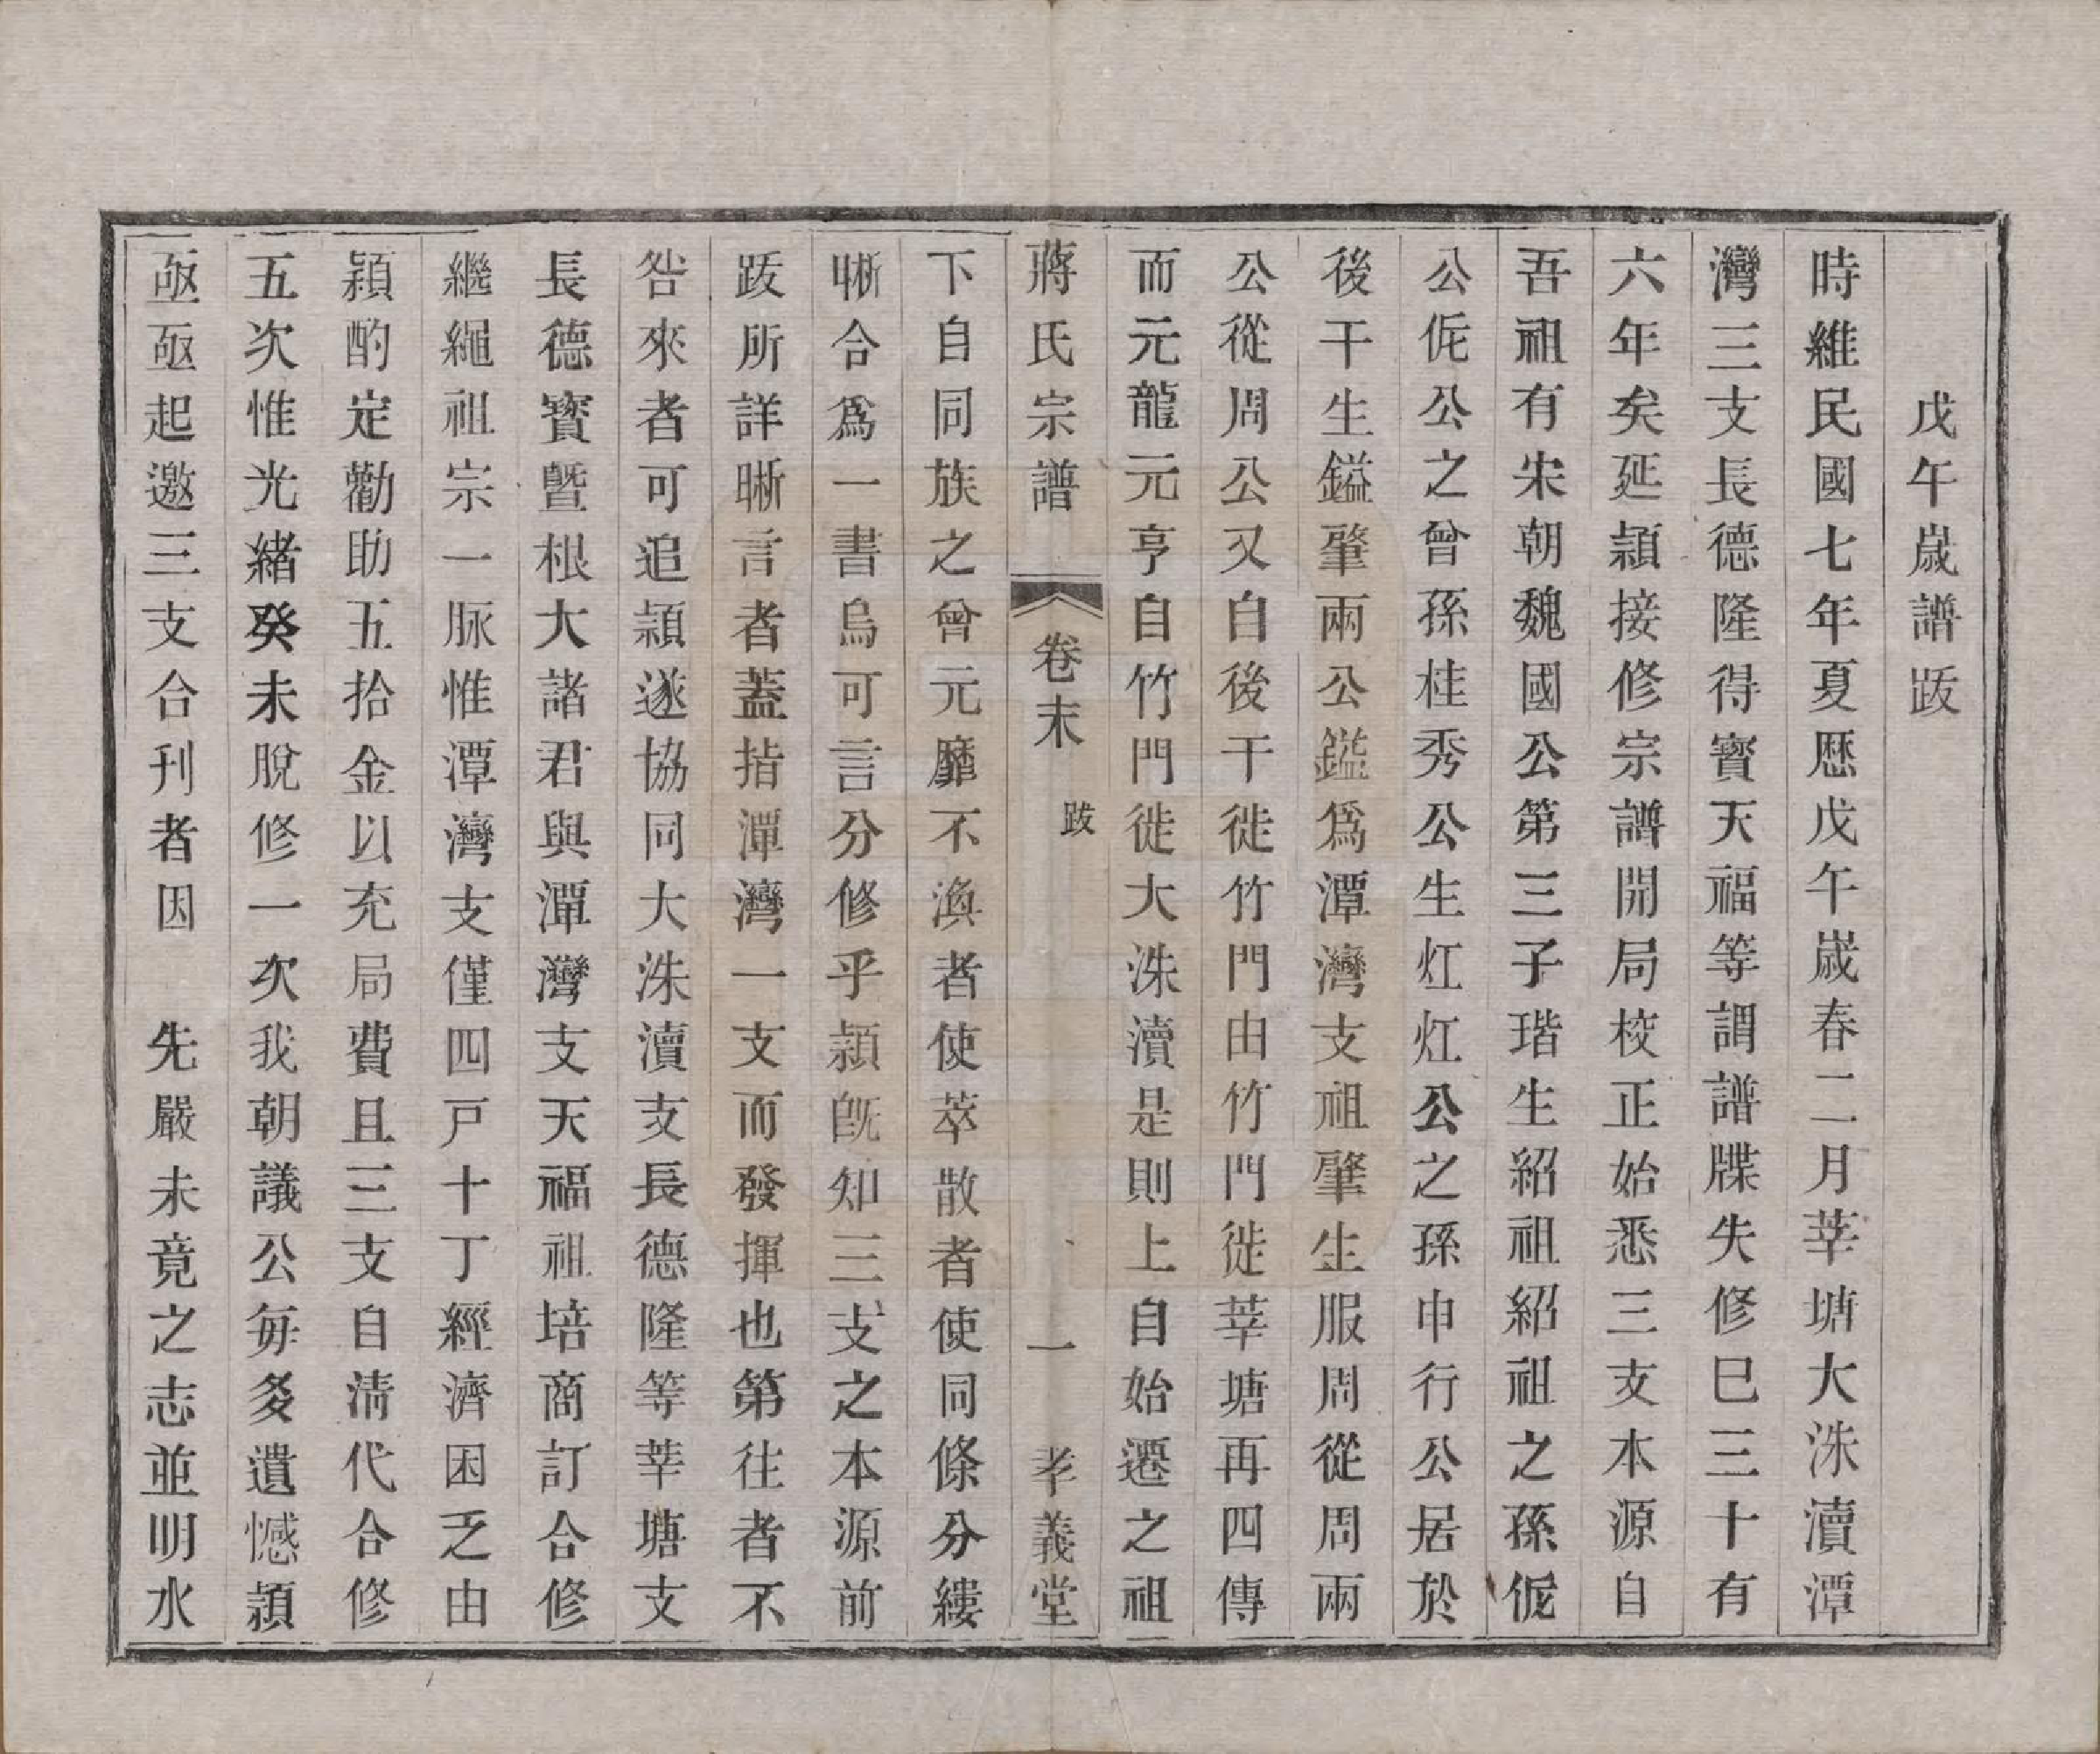 戊午歲譜跋
時維民國七年夏歷戊午歲春二月莘塘大洙瀆潭
灣三支長德隆得寳天福等謂譜牒失修巳三十有
六年矣延頴接修宗譜開局校正始悉三支本源自
吾祖有宋朝魏國公第三子瑎生紹祖紹祖之孫伲
公伲公之曾孫桂秀公生灴灴公之孫申行公居於
後干生鎰肇兩公鎰爲潭灣支祖肇生服周從周兩
公從周公又自後干徙竹門由竹門徙莘塘再四傳
而元龍元亨自竹門徙大洙瀆是則上自始遷之祖
蔣氏宗譜 卷末 跋 一 孝義堂
下自同族之曾元靡不渙者使萃散者使同條分縷
晰合爲一書烏可言分修乎頴旣知三支之本源前
跋所詳晰言者蓋指潭灣一支而發揮也第往者不
咎來者可追頴遂協同大洙瀆支長德隆等莘塘支
長德寳曁根大諸君與潭灣支天福祖培商訂合修
繼繩祖宗一脉惟潭灣支僅四戸十丁經濟困乏由
頴酌定勸助五拾金以充局費且三支自淸代合修
五次惟光緒癸未脫修一次我朝議公每多遺憾頴
亟亟起邀三支合刊者因 先嚴未竟之志並明水